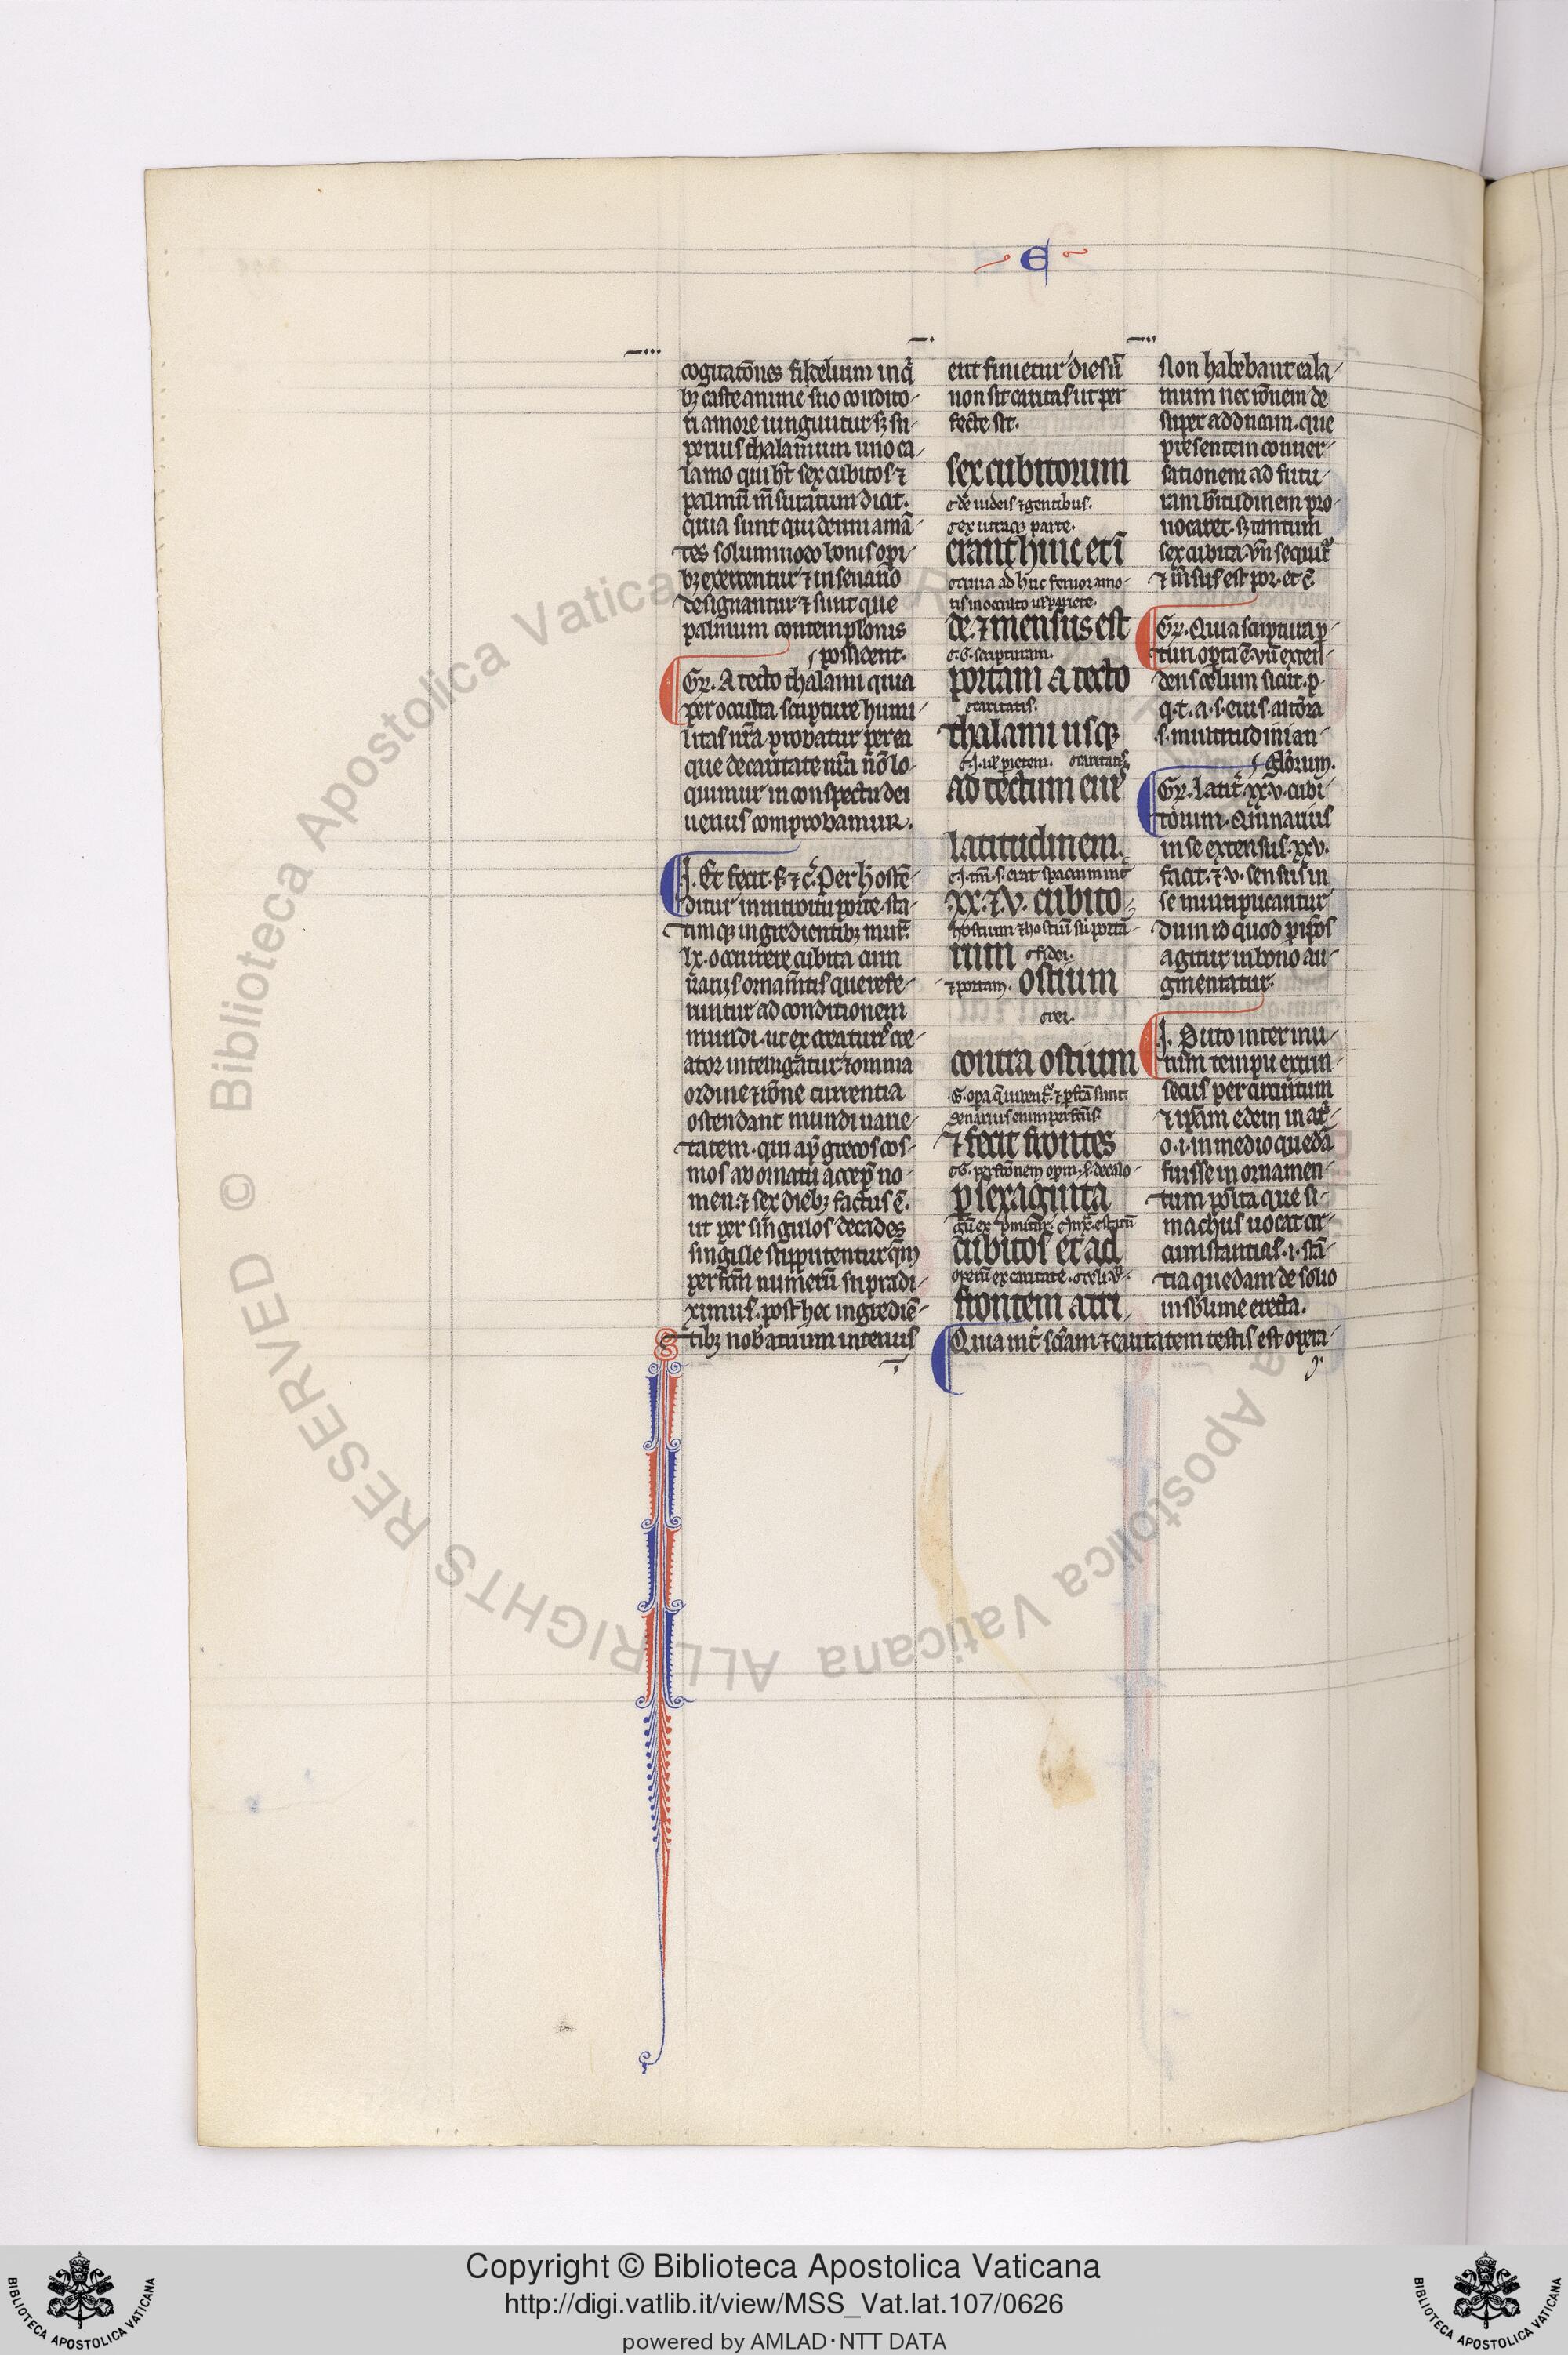 E
cogitatōnes fidelium in q̄
bȝ caste anime suo condito-
ri amore iunguntur sȝ su-
perius thalamum uno ca-
lamo qui hꝫ sex cubitos ⁊
palmū m̄suratum dicit.
quia sunt qui deum amā-
tes solummodo bonis opi-
bȝ exercentur ⁊ in senario
designantur ⁊ sunt que
palmum contemplōnis
possident.
Gȝ. A tecto thalami quia
per occulta scripture humi-
litas nr̄a probatur per ea
que de caritate nr̄a nō lo-
quimur in conspectu dei
uerius comprobamur.
J. Et fecit. f. ⁊ c̄. Per hostē-
ditur in introitu porte sta-
timqȝ ingredientibȝ
lx. occurrere cubita cum
uariis ornam̄tis que refe-
runtur ad conditionem
mundi. ut ex creaturis cre-
ator intelligatur ⁊ omnia
ordine ⁊ rōne currentia
ostendant mundi uarie-
tatem. qui ap̄ grecos cos-
mos ab ornatu accep̄ no-
men. ⁊ sex diebȝ factus ē.
ut per singulos decades
singule supputentur qm̄
perfectū numerū supradi-
ximus. post hec ingrediē-
tibȝ nob̄ atrium interius
erit finietur dies n̄
non sit caritas ut per
fecte sit.
sex cubitorum
de iudeis ⁊ gentibus.
ex utraqȝ parte.
erant hinc et ī
quia ad huc feruor amo-
ris in occulto
de. ⁊ mensus est
G. scripturam.
portam a tecto
caritatis.
thalami usqȝ
caritatis
ad tectum eius
latitudinem
.xx. ⁊ .v. cubito-
hostium ⁊ hostiū
rum fidei.
⁊ portam. ostium
rei.
contra ostium
denarius enim perfectus.
⁊ fecit frontes
G. perfectōnem
p sexaginta
cubitos et ad
operū ex caritate.
frontem atri
Non habebant cala-
mum nec rōnem de
super adducun. que
presentem conuer-
sationem ad futu-
ram b̄titudinem pro-
uocaret. sȝ tantum
sex cubita. vn̄ sequit̄
⁊ m̄sus est por. et c̄
Gȝ. Quia scriptura p̄-
tim operta ē. vn̄ exten-
dens celum sicut. p-
q. t. a. s. eius. auctōra
s. multitudini an-
glorum.
Gȝ. Latit̄. xxv. cubi-
torum. Quinarius
in se extensus. xxv.
facit. ⁊ .v. sensus in
se multiplicantur
dum id quod p̄ ip̄os
agitur in bono au-
gmentatur.
J. Puto inter mu-
rum templi extrin-
secus per circuitum
⁊ ipsam edem in at̄-
o. i. in medio quedā
fuisse in ornamen-
tum posita que si-
machus uocat cir-
cumstantias. i. stā-
tia quedam de solio
in sublime erecta.
Quia int̄ sc̄iam ⁊ caritatem testis est opera-
© Biblioteca Apostolica Vaticana
ALL RIGHTS RESERVED
Copyright © Biblioteca Apostolica Vaticana
http://digi.vatlib.it/view/MSS_Vat.lat.107/0626
powered by AMLAD·NTT DATA
BIBLIOTECA APOSTOLICA VATICANA
BIBLIOTECA APOSTOLICA VATICANA